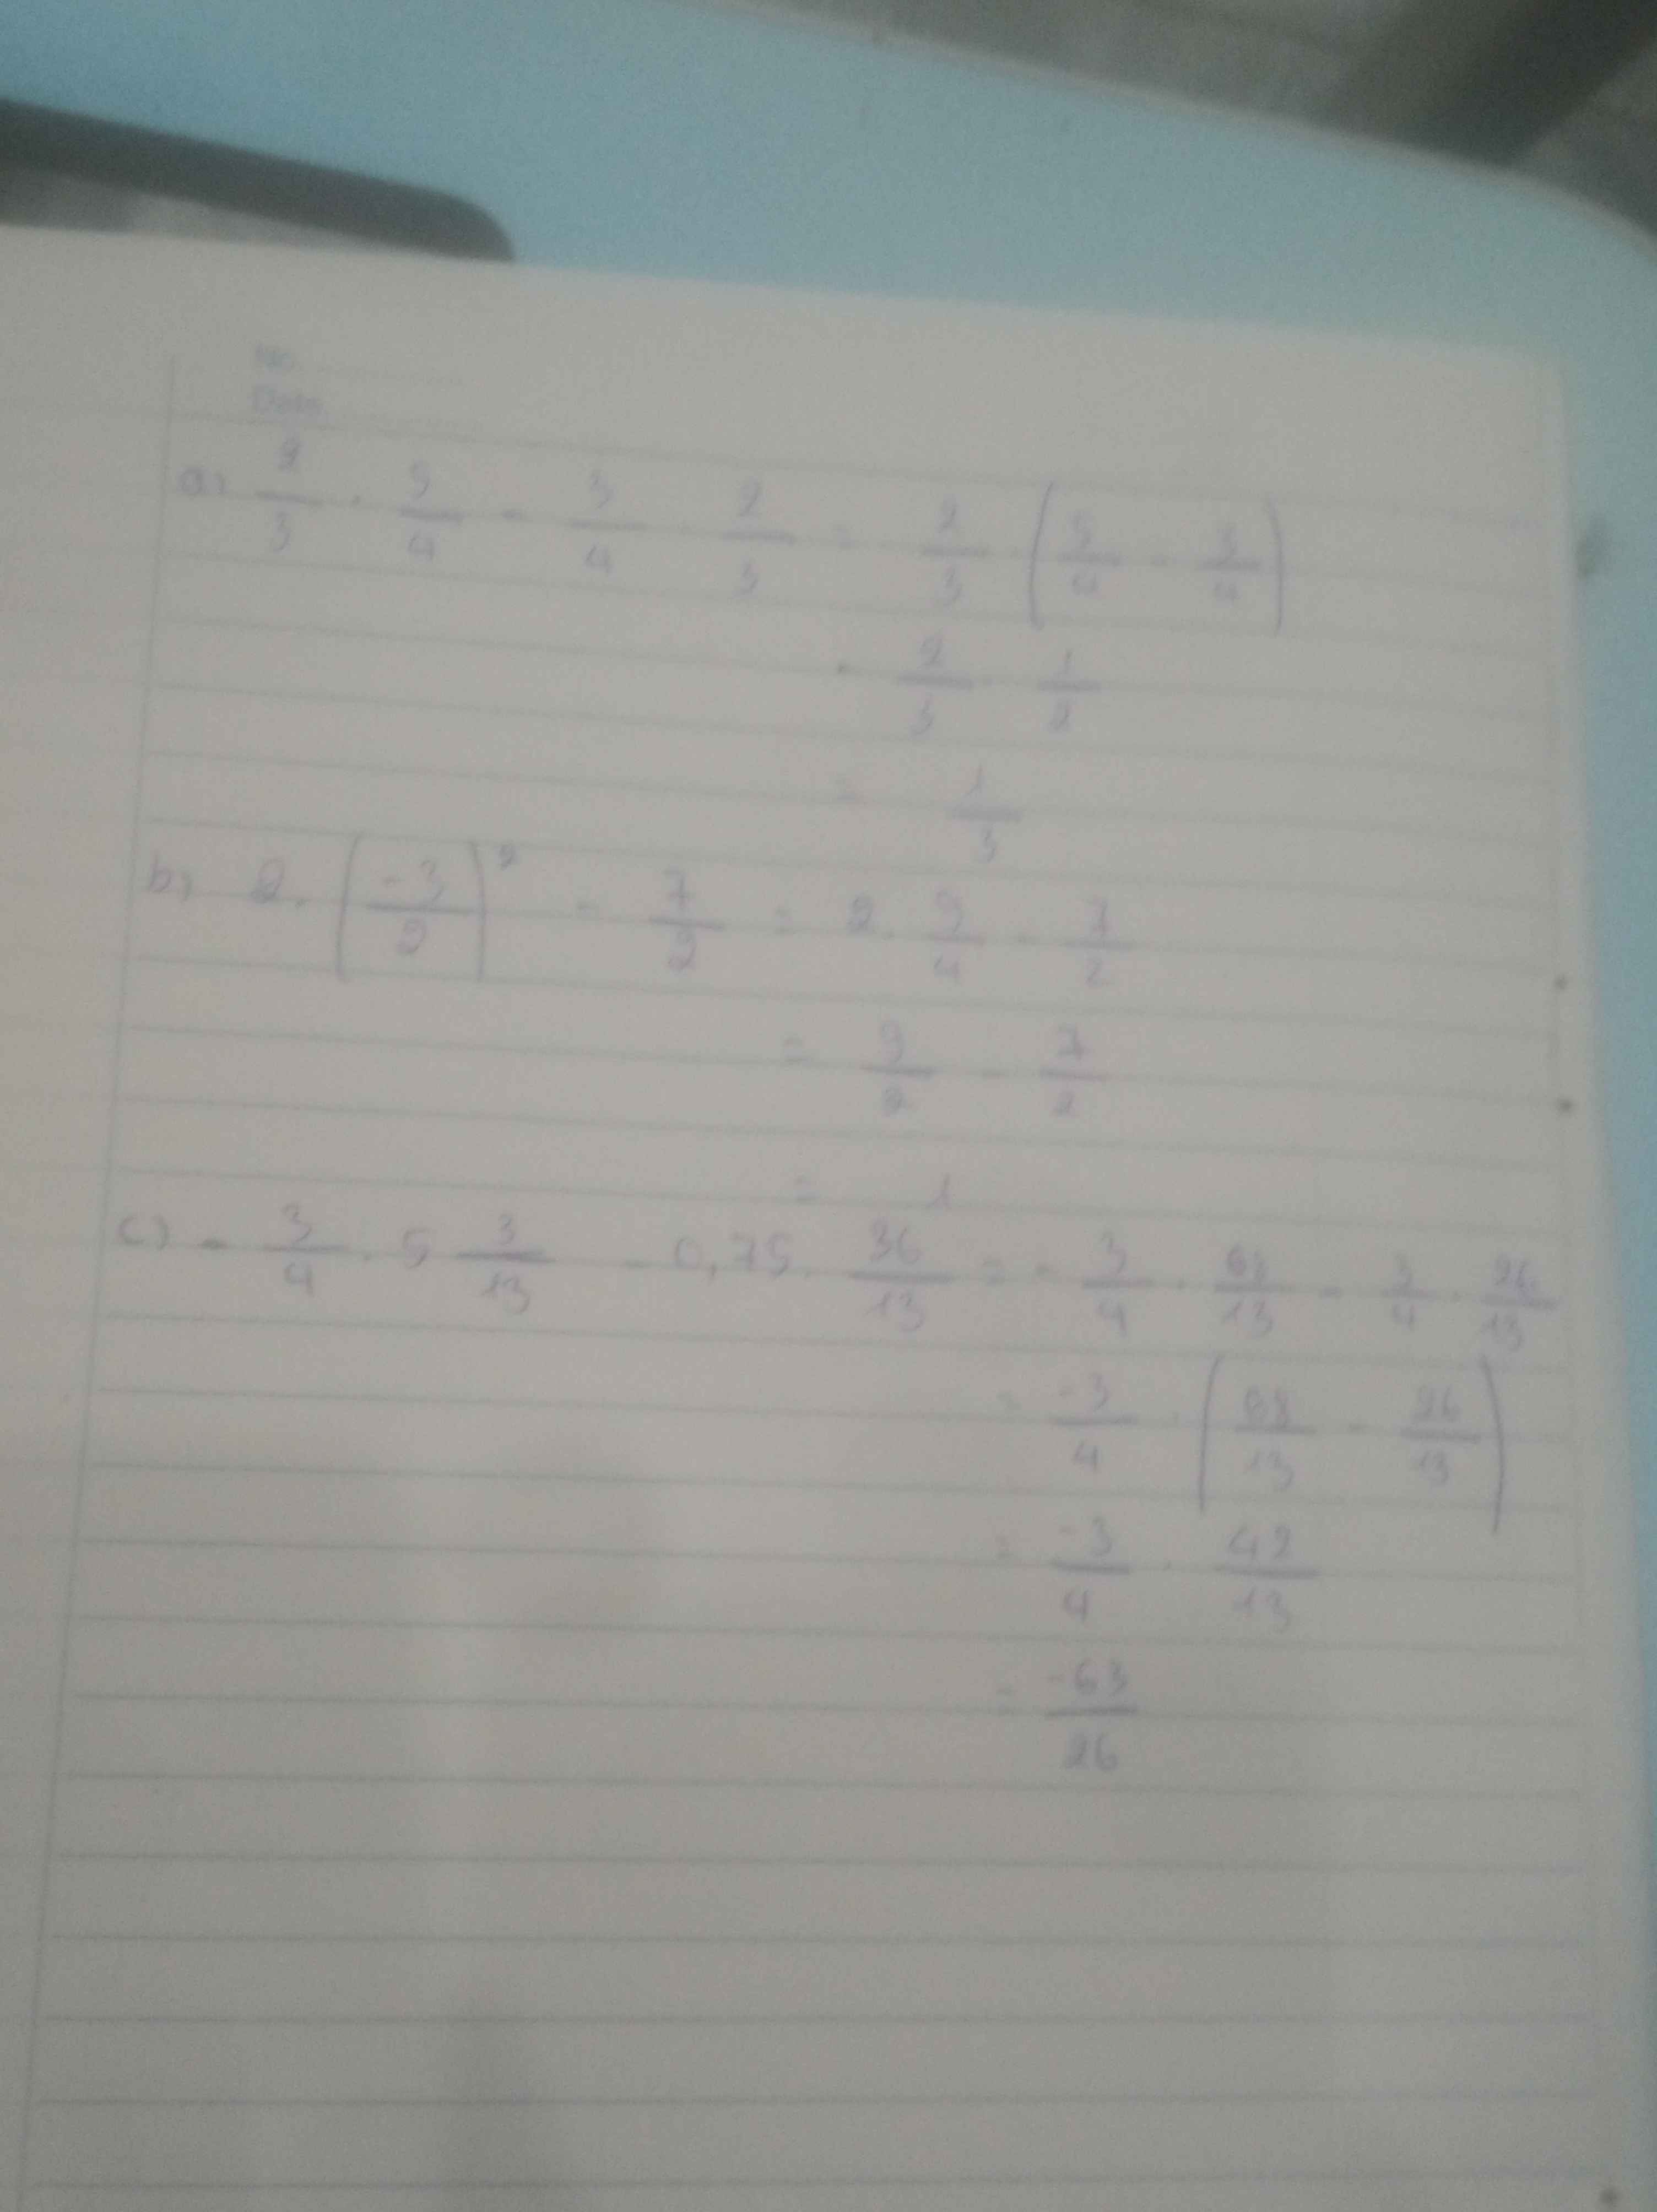 No.
Date
a) 2/3 . 5/4 - 3/4 . 2/3 = 2/3 (5/4 - 3/4)
= 2/3 . 1/2
= 1/3
b) 2. (-3/2)² - 7/2 = 2. 9/4 - 7/2
= 9/2 - 7/2
= 1
c) - 3/4 . 5 3/13 - 0,75. 36/13 = - 3/4 . 68/13 - 3/4 . 26/13
= -3/4 . (68/13 - 26/13)
= -3/4 . 42/13
= -63/26